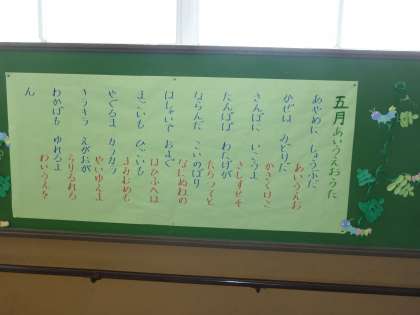 五月 あいうえおうた
あやめに しょうぶだ
あいうえお
かぜは みどりだ
かきくけこ
さんぽに いこうよ
さしすせそ
たんぽぽ わたげが
たちつてと
ならんだ こいのぼり
なにぬねの
はしゃいで およぐ
はひふへほ
まごいも ひごいも
まみむめも
やぐるま カラカラ
やいゆえよ
キラキラ えがおが
らりるれろ
わかばも ゆれるよ
わいうえを
ん